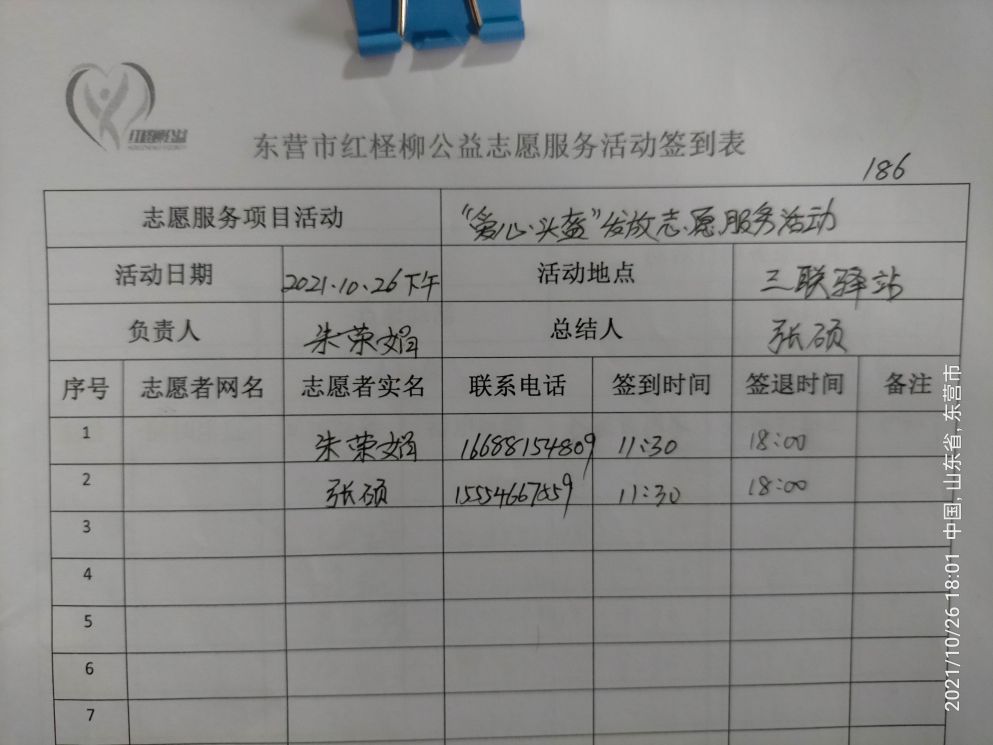 东营市红柽柳公益志愿服务活动签到表
186
志愿服务项目活动 “爱心头盔”发放志愿服务活动
活动日期 2021.10.26下午 活动地点 三联驿站
负责人 朱荣娟 总结人 张硕
序号 志愿者网名 志愿者实名 联系电话 签到时间 签退时间 备注
1 朱荣娟 16688154809 11:30 18:00
2 张硕 15554667559 11:30 18:00
3
4
5
6
7
2021/10/26 18:01 中国, 山东省, 东营市